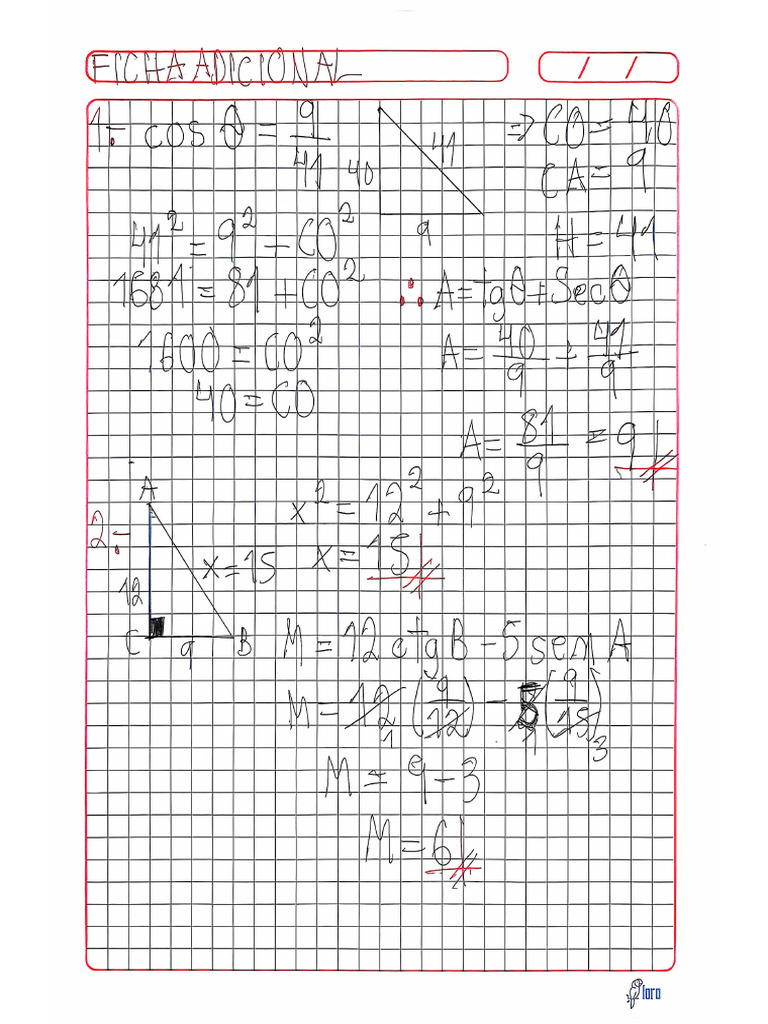 FICHA ADICIONAL / /
1.- cos θ = 9/41
40 41 9
⇒ CO = 40
CA = 9
H = 41
41² = 9² - CO²
1681 = 81 + CO²
1600 = CO²
40 = CO
∴ A = Tgθ + Secθ
A = 40/9 + 41/9
A = 81/9 = 9
2.-
A
12
x = 15
C 9 B
x² = 12² + 9²
x = 15
M = 12 ctgB - 5 sen A
M = 12 (9/12) - 5 (9/15)
1 1 3
M = 9 - 3
M = 6
loro